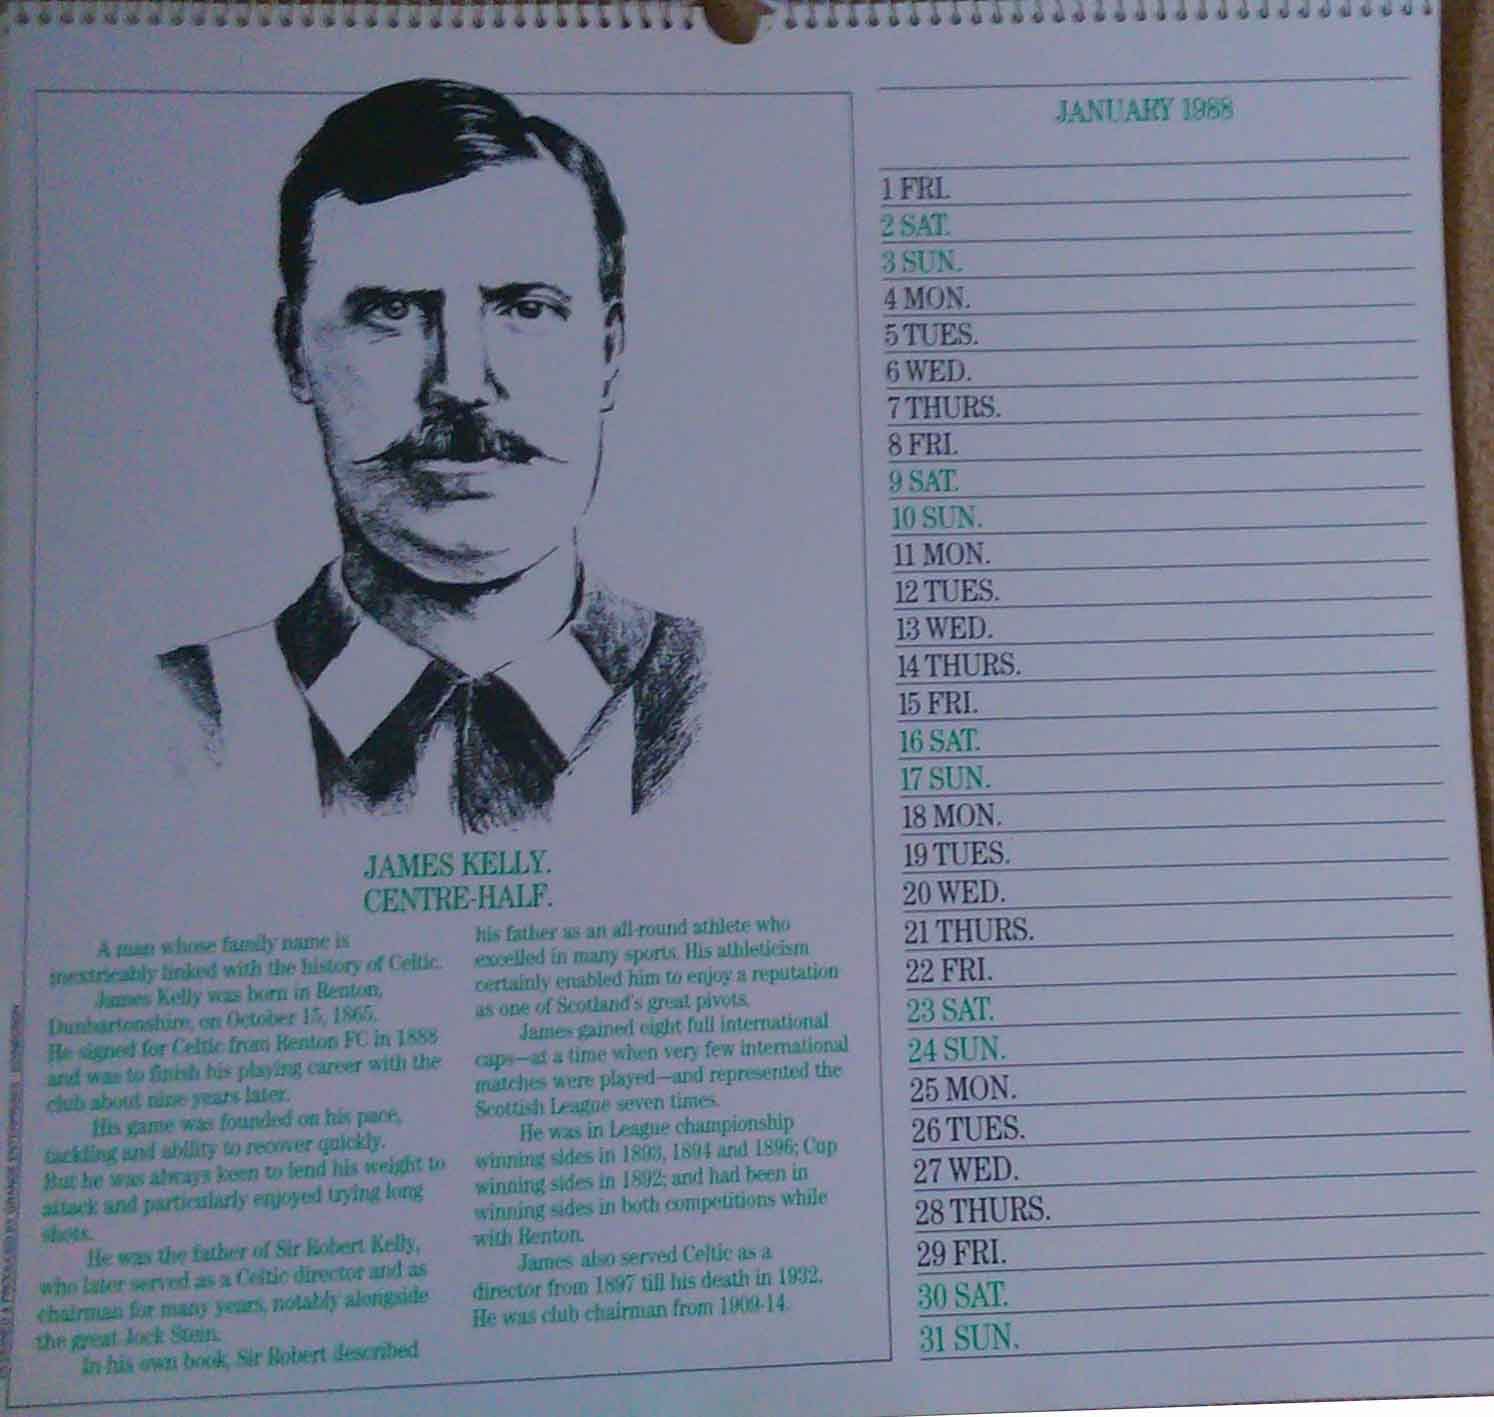 JAMES KELLY.
CENTRE-HALF.
A man whose family name is
inextricably linked with the history of Celtic.
James Kelly was born in Renton,
Dunbartonshire, on October 15, 1865.
He signed for Celtic from Renton FC in 1888
and was to finish his playing career with the
club about nine years later.
His game was founded on his pace,
tackling and ability to recover quickly.
But he was always keen to lend his weight to
attack and particularly enjoyed trying long
shots.
He was the father of Sir Robert Kelly,
who later served as a Celtic director and as
chairman for many years, notably alongside
the great Jock Stein.
In his own book, Sir Robert described
his father as an all-round athlete who
excelled in many sports. His athleticism
certainly enabled him to enjoy a reputation
as one of Scotland's great pivots.
James gained eight full international
caps—at a time when very few international
matches were played—and represented the
Scottish League seven times.
He was in League championship
winning sides in 1893, 1894 and 1896; Cup
winning sides in 1892; and had been in
winning sides in both competitions while
with Renton.
James also served Celtic as a
director from 1897 till his death in 1932.
He was club chairman from 1909-14.
JANUARY 1988
1 FRI.
2 SAT.
3 SUN.
4 MON.
5 TUES.
6 WED.
7 THURS.
8 FRI.
9 SAT.
10 SUN.
11 MON.
12 TUES.
13 WED.
14 THURS.
15 FRI.
16 SAT.
17 SUN.
18 MON.
19 TUES.
20 WED.
21 THURS.
22 FRI.
23 SAT.
24 SUN.
25 MON.
26 TUES.
27 WED.
28 THURS.
29 FRI.
30 SAT.
31 SUN.